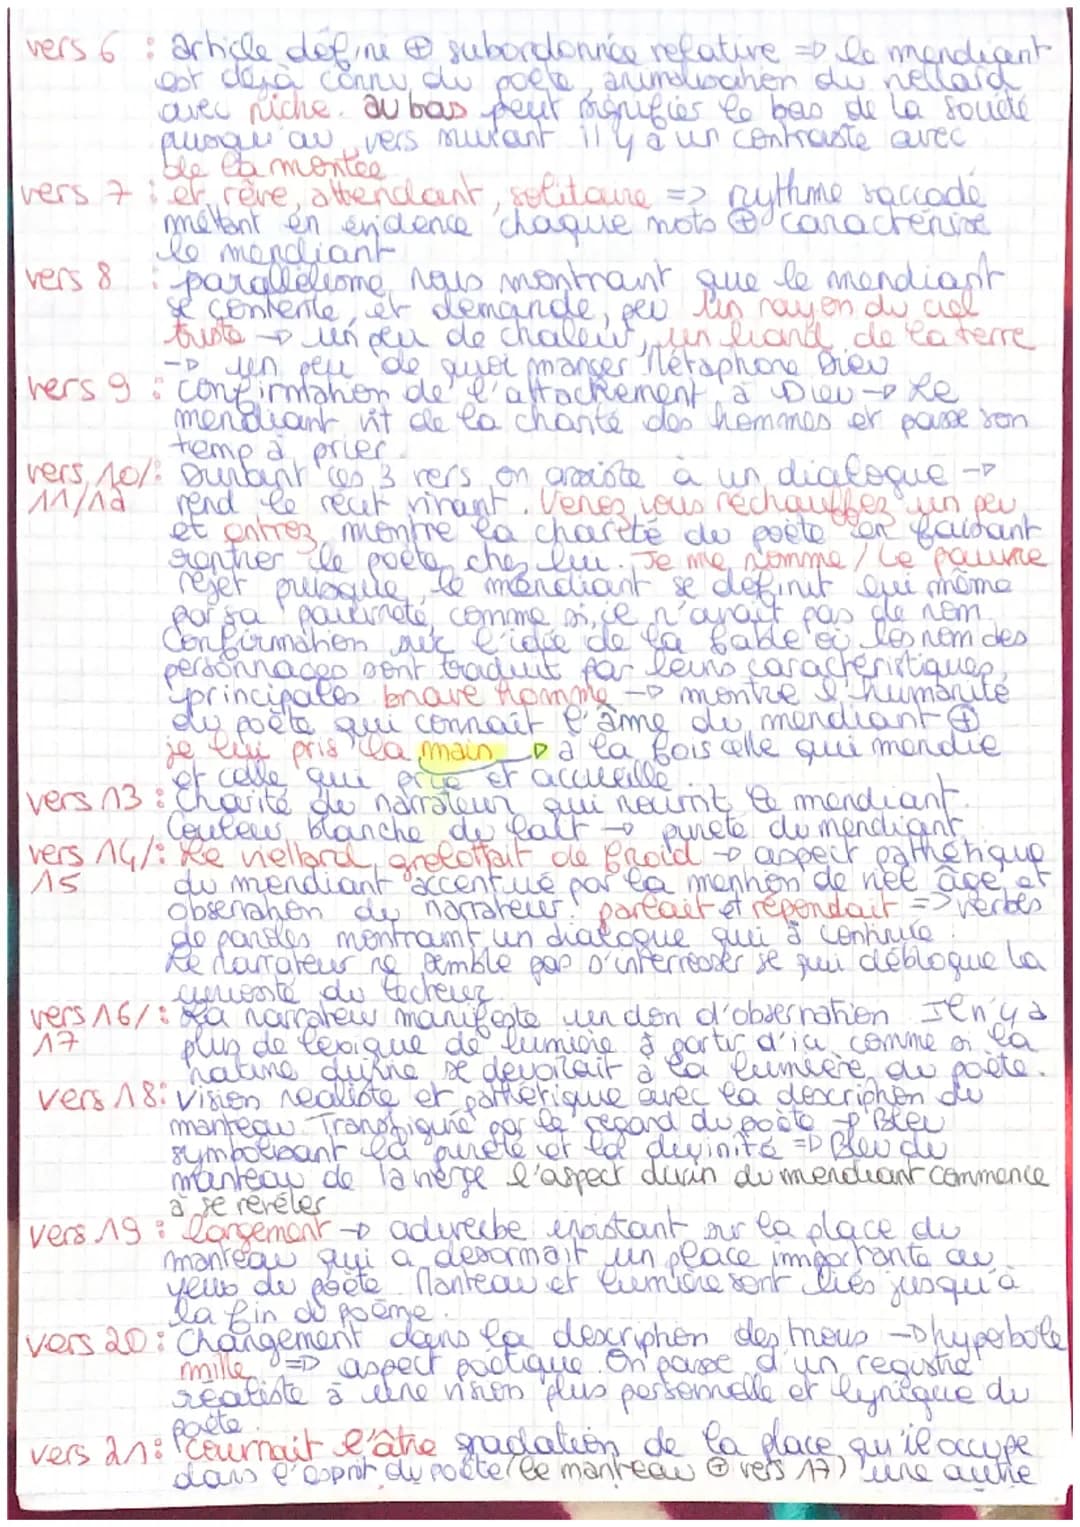 vers 6 : article défini ⊕ subordonnée relative => le mendiant
est déjà connu du poète, animalisation du viellard
avec niche. au bas peut signifier le bas de la société
puisqu'au vers suivant il y a un contraste avec
de la montée
vers 7 : et rêve, attendant, solitaire => rythme saccadé
mettant en évidence chaque mots ⊕ caractérise
le mendiant
vers 8 : parallélisme nous montrant que le mendiant
se contente, et demande, peu Un rayon du ciel
triste → un peu de chaleur, un liard de la terre
→ un peu de quoi manger Métaphore Dieu
vers 9 : confirmation de l'attachement à Dieu → Le
mendiant vit de la charité des hommes et passe son
temp à prier
vers 10/ : Durant ces 3 vers on assiste à un dialogue →
11/12 rend le récit vivant. Venez vous réchauffez un peu
et entrez montre la charité du poète en faisant
rentrer le poète chez lui. Je me nomme / Le pauvre
rejet puisque le mendiant se définit lui même
par sa pauvreté, comme si, il n'avait pas de nom
Confirmation avec l'idée de la fable où les nom des
personnages sont traduit par leurs caractéristiques
principales brave homme → montre l'humanité
du poète qui connait l'âme du mendiant ⊕
je lui pris la main → à la fois celle qui mendie
et celle qui prie et accueille.
vers 13 : Charité du narrateur qui nourrit le mendiant.
Couleur blanche du lait → pureté du mendiant
vers 14/ : Le viellard grelottait de froid → aspect pathétique
15 du mendiant accentué par la mention de viel âge et
observation du narrateur. parlait et répondait => verbes
de paroles montrant un dialogue qui à continué.
Le narrateur ne semble pas s'interresser se qui débloque la
curiosité du lecteur
vers 16/ : La narrateur manifeste un don d'observation Il n'y a
17 plus de lexique de lumière à partir d'ici comme si la
nature divine se dévoilait à la lumière du poète.
vers 18 : Vision réaliste et pathétique avec la description du
manteau Transfiguré par le regard du poète → Bleu
symbolisant la pureté et la divinité => Bleu du
manteau de la vierge l'aspect divin du mendiant commence
à se révéler
vers 19 : largement → adverbe insistant sur la place du
manteau qui a désormait un place importante au
yeux du poète. Manteau et lumière sont liés jusqu'à
la fin du poème.
vers 20 : Changement dans la description des trous → hyperbole
mille => aspect poétique. On passe d'un registre
réaliste à une vision plus personnelle et lyrique du
poète.
vers 21 : Couvrait l'âtre gradation de la place qu'il occupe
dans l'esprit du poète (le manteau ⊕ vers 17) une autre